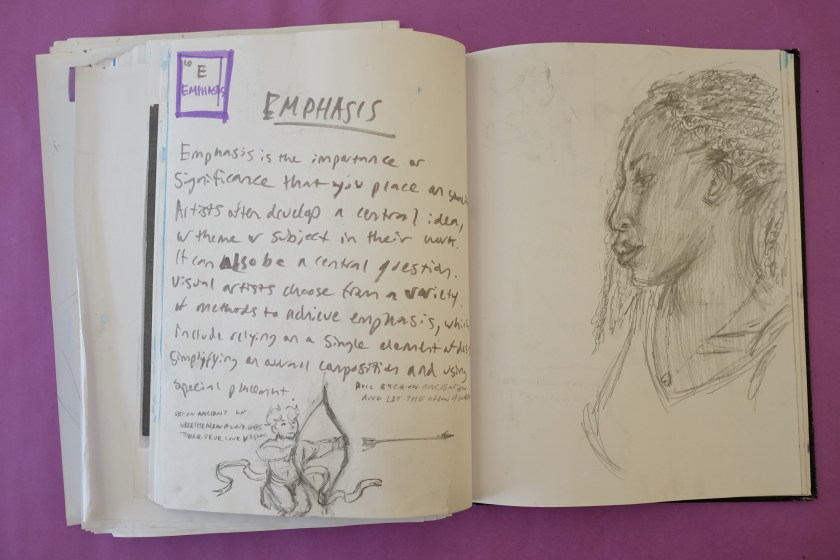 10
E
EMPHASIS
EMPHASIS
Emphasis is the importance or
significance that you place on
Artists often develop a central idea,
or theme or subject in their work.
It can also be a central question.
Visual artists choose from a variety
of methods to achieve emphasis, which
include relying on a single element of
simplifying an overall composition and using
special placement.
PULL BACK AN ANCIENT BOW
AND LET THE ARROW
GET AN ANCIENT BOW
WHERE THE ARROW GOES
YOUR TRUE LOVE